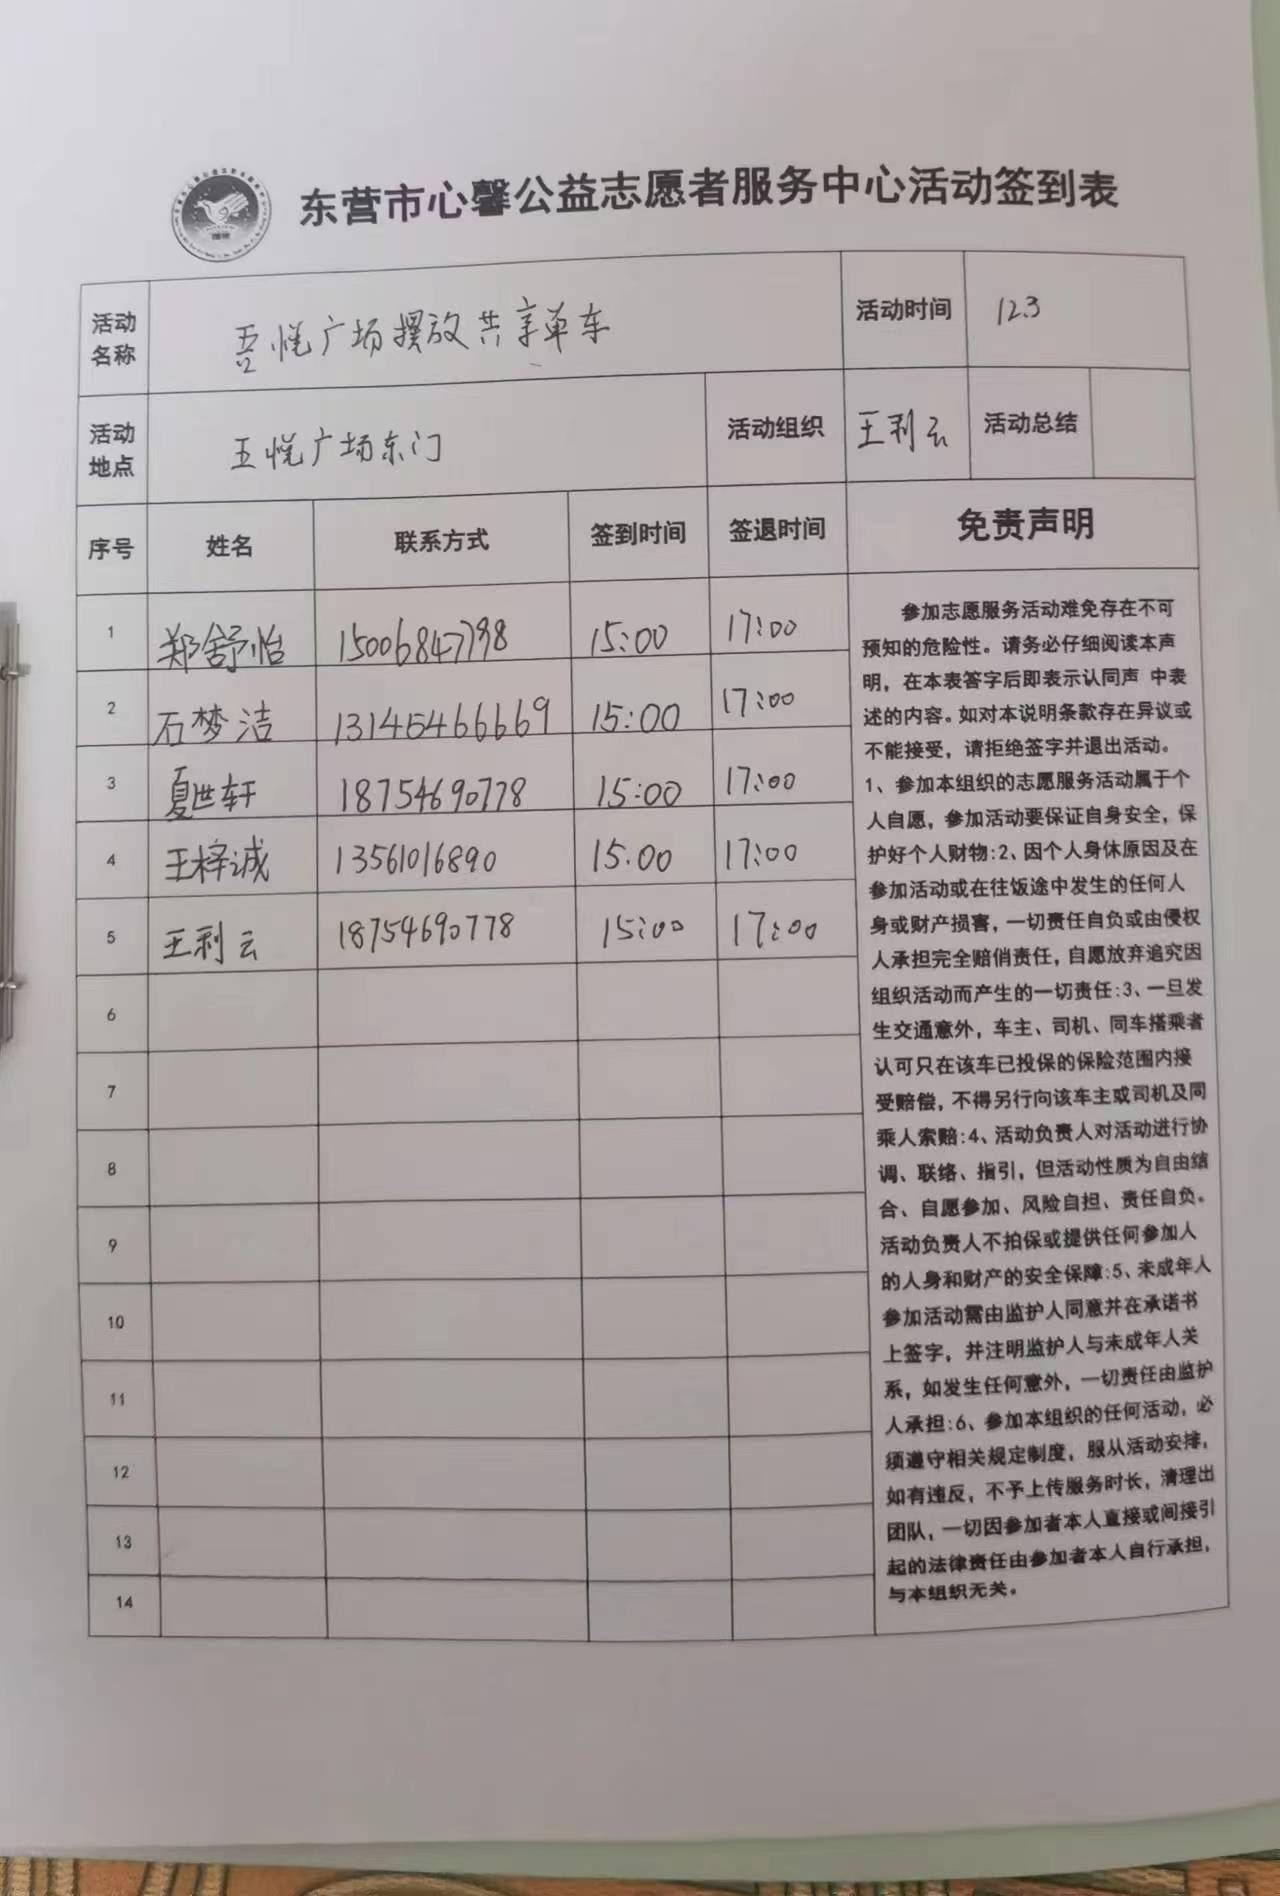 东营市心馨公益志愿者服务中心活动签到表
活动名称 吾悦广场摆放共享单车 活动时间 12.3
活动地点 五悦广场东门 活动组织 王利云 活动总结
序号 姓名 联系方式 签到时间 签退时间 免责声明
1 郑舒怡 15006847798 15:00 17:00
2 石梦洁 13145466669 15:00 17:00
3 夏世轩 18754690778 15:00 17:00
4 王梓诚 13561016890 15:00 17:00
5 王利云 18754690778 15:00 17:00
6
7
8
9
10
11
12
13
14
参加志愿服务活动难免存在不可
预知的危险性。请务必仔细阅读本声
明，在本表签字后即表示认同声 中表
述的内容。如对本说明条款存在异议或
不能接受，请拒绝签字并退出活动。
1、参加本组织的志愿服务活动属于个
人自愿，参加活动要保证自身安全，保
护好个人财物:2、因个人身休原因及在
参加活动或在往饭途中发生的任何人
身或财产损害，一切责任自负或由侵权
人承担完全赔俏责任，自愿放弃追究因
组织活动而产生的一切责任:3、一旦发
生交通意外，车主、司机、同车搭乘者
认可只在该车已投保的保险范围内接
受赔偿，不得另行向该车主或司机及同
乘人索赔:4、活动负责人对活动进行协
调、联络、指引，但活动性质为自由结
合、自愿参加、风险自担、责任自负。
活动负责人不拍保或提供任何参加人
的人身和财产的安全保障:5、未成年人
参加活动需由监护人同意并在承诺书
上签字，并注明监护人与未成年人关
系，如发生任何意外，一切责任由监护
人承担:6、参加本组织的任何活动，必
须遵守相关规定制度，服从活动安排，
如有违反，不予上传服务时长，清理出
团队，一切因参加者本人直接或间接引
起的法律责任由参加者本人自行承担，
与本组织无关。